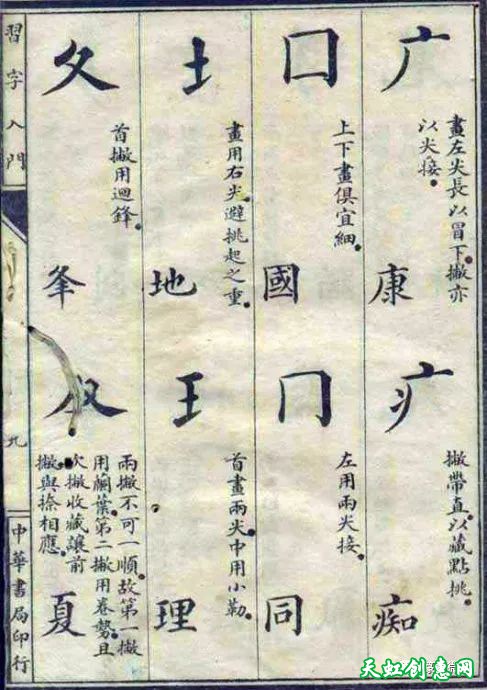 广
畫左尖長以冒下。撇亦
以尖接。
康
疒
撇帶直以藏點挑。
痴
囗
上下畫俱宜細。
國
冂
左用兩尖接。
同
土
畫用右尖。避挑起之重。
地
王
首畫兩尖中用小勒。
理
夂
首撇用迴鋒。
夆
兩撇不可一順。故第一撇
用蘭葉。第二撇用卷勢。且
次撇收藏讓前
撇。與捺相應。
夏
習字入門
九
中華書局印行
天虹创意网